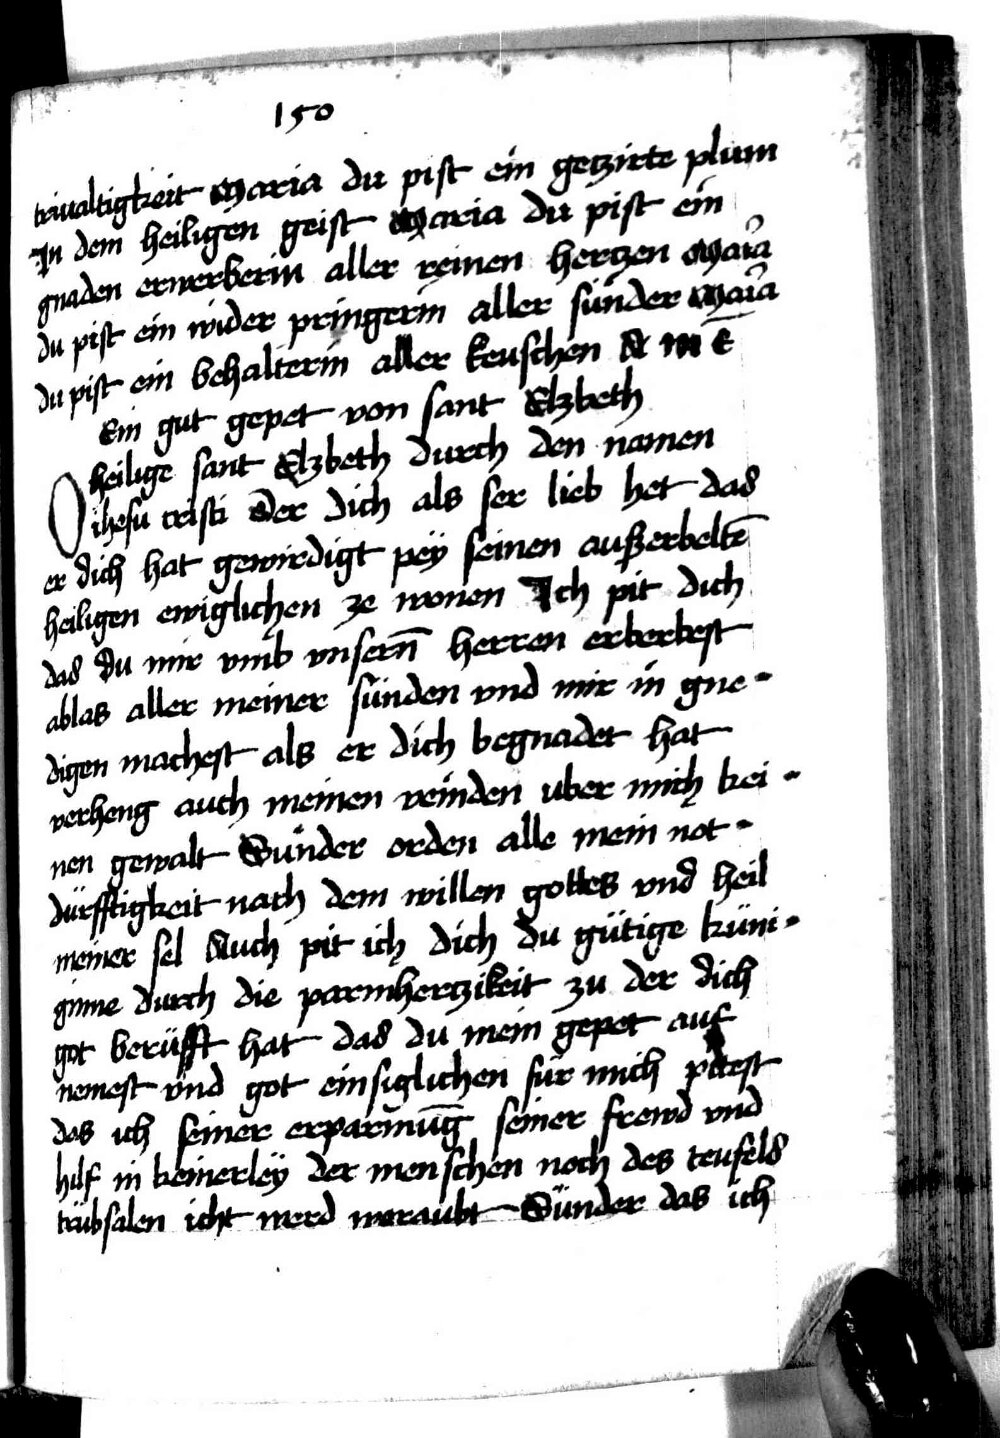 150
triualtigkeit Maria du pist ein getzirte plum
In dem heiligen geist Maria du pist ein
gnaden erwerberin aller reinen hertzen Maria
du pist ein wider pringerin aller sünder Maria
du pist ein behalterin aller keuschen A M E
Ein gut gepet von sant Elzbeth
O heilige sant Elzbeth durch den namen
ihesu cristi der dich als ser lieb het das
er dich hat gewirdigt pey seinen außerbeltē
heiligen ewiglichen ze wonen Ich pit dich
das du mir vmb vnsern̄ herren erberbest
ablas aller meiner sünden vnd mir in gne-
digen machest als er dich begnadet hat
verheng auch meinen veinden uber mich kei-
nen gewalt Sunder orden alle mein not-
dürfftigkeit nach dem willen gottes vnd heil
meiner sel Auch pit ich dich du gütige küni-
ginne durch die parmhertzikeit zu der dich
got berüfft hat das du mein gepet auf
nemest vnd got einsiglichen für mich pitest
das ich seiner erparmūg seiner frewd vnd
hilf in keinerley der menschen noch des teufels
trübsalen icht werd weraubt Sünder das ich